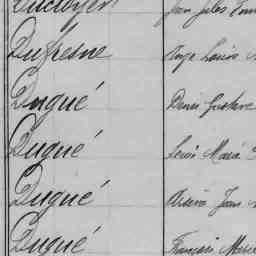 Dufresne Ange Louis
Dugué Denis Gustave
Dugué Louis Marie
Dugué Arsène Jean
Dugué François Marie